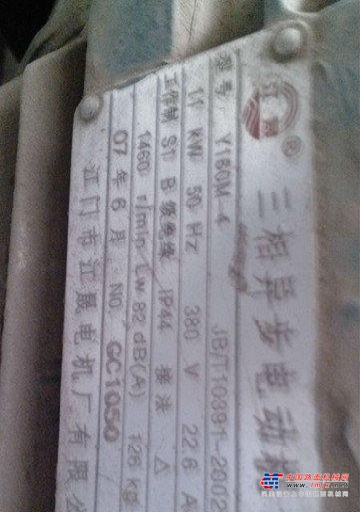 三相异步电动机
型号 Y160M-4 JB/T10391-2002
11 kW 50 Hz 380 V 22.6 A
工作制 S1 B级绝缘 IP44 接法 △
1460 r/min Lw 82 dB(A) 126 kg
07 年 6 月 NO GC1050
江门市江晟电机厂有限
中国路面机械网